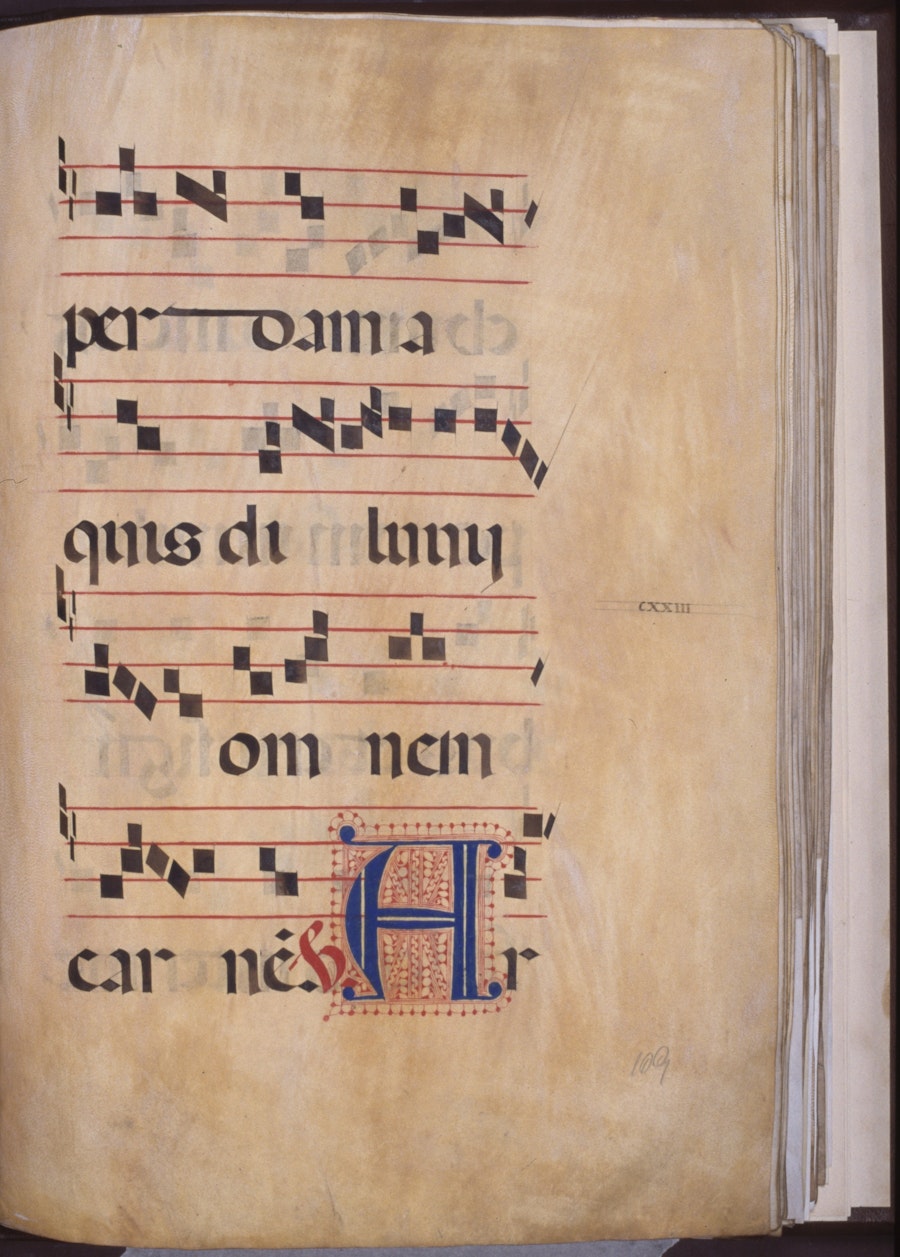 per damıa
quis di luuıj
om nem
car nē. V Ar
cxxiii
109